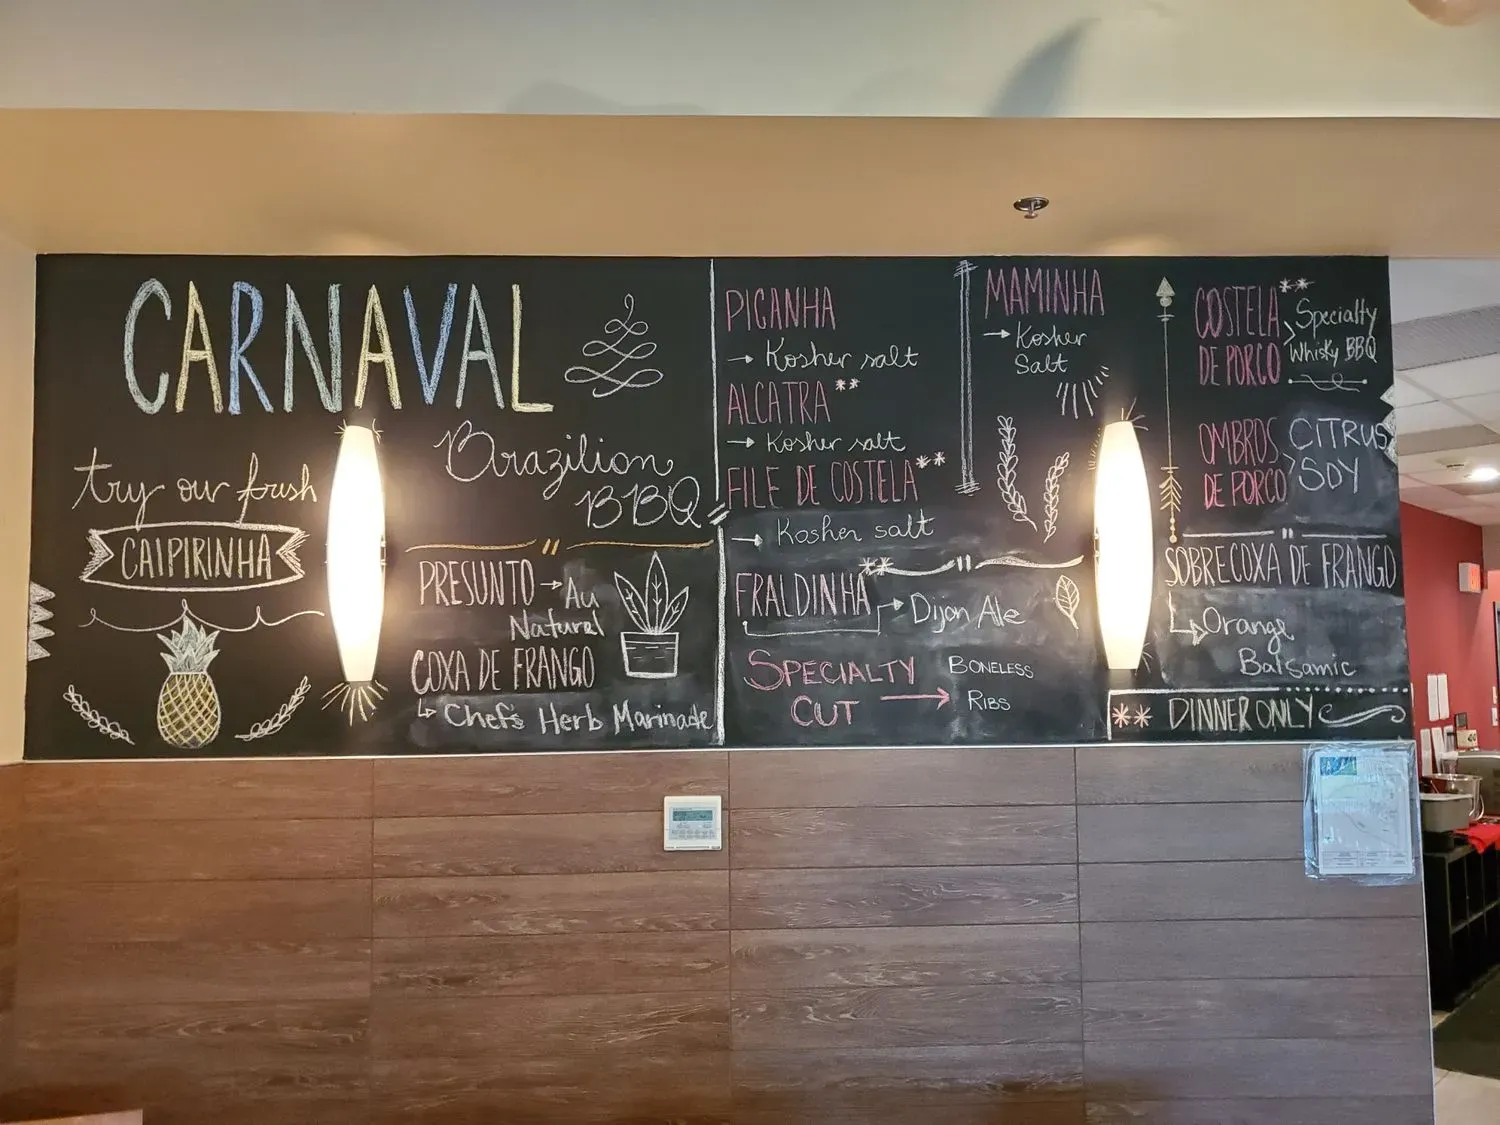 CARNAVAL
Brazilian
BBQ
try our fresh
CAIPIRINHA
PRESUNTO → Au
Natural
COXA DE FRANGO
Chef's Herb Marinade
PICANHA
→ Kosher salt
ALCATRA**
→ Kosher salt
FILE DE COSTELA**
→ Kosher salt
FRALDINHA** → Dijon Ale
SPECIALTY
CUT → BONELESS
RIBS
MAMINHA
→ Kosher
Salt
COSTELA**
DE PORCO
Specialty
Whisky BBQ
OMBROS
DE PORCO
CITRUS
SOY
SOBRECOXA DE FRANGO
Orange
Balsamic
** DINNER ONLY